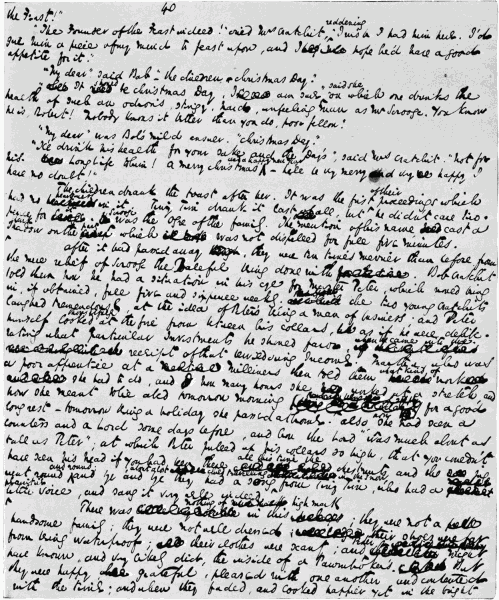 40
the Feast!"
"The Founder of the Feast indeed!" cried Mrs Cratchit, reddening "I wish I had him here. I'd
give him a piece of my mind to feast upon, and I hope he'd have a good
appetite for it."
"My dear" said Bob: "the children; Christmas Day."
"It should be Christmas Day, I am sure," said she, "on which one drinks the
health of such an odious, stingy, hard, unfeeling man as Mr Scrooge. You know
he is, Robert! Nobody knows it better than you do, poor fellow!"
"My dear," was Bob's mild answer. "Christmas Day."
"I'll drink his health for your sake and the Day's", said Mrs Cratchit. "Not for
his. Long life to him! A merry Christmas and a happy new year! — he'll be very merry and very happy I
have no doubt!"
The children drank the toast after her. It was the first of their proceedings which
had no heartiness in it. Tiny Tim drank it last of all, but he didn't care two-
pence for it. Scrooge was the Ogre of the family. The mention of his name cast a
shadow on the party which was not dispelled for full five minutes.
After it had passed away, they were ten times merrier than before, from
the mere relief of Scrooge the Baleful being done with. Bob Cratchit
told them how he had a situation in his eye for Master Peter, which would bring
in, if obtained, full five and sixpence weekly. The two young Cratchits
laughed tremendously at the idea of Peter's being a man of business; and Peter
himself looked thoughtfully at the fire from between his collars, as if he were delib-
erating what particular investments he should favor when he came into the
receipt of that bewildering Income. Martha, who was
a poor apprentice at a milliners, then told them what kind of work
she had to do, and how many hours she worked at a stretch, and
how she meant to lie abed tomorrow morning for a good
long rest - tomorrow being a holiday she passed at home. also she had seen a
countess and a lord some days before, and how the lord "was much about as
tall as Peter"; at which Peter pulled up his collars so high, that you couldn't
have seen his head if you had been there. all this time the chestnuts and the jug
went round and round; and by and bye they had a song about a lost child travelling in the snow, from Tiny Tim, who had a
plaintive little voice, and sang it very well indeed.
There was nothing of high mark in this. they were not a
handsome family; they were not well dressed; their shoes were far
from being waterproof; their clothes were scanty; and Peter might
have known, and very likely did, the inside of a Pawnbroker's. But
they were happy, grateful, pleased with one another, and contented
with the time; and when they faded, and looked happier yet in the bright